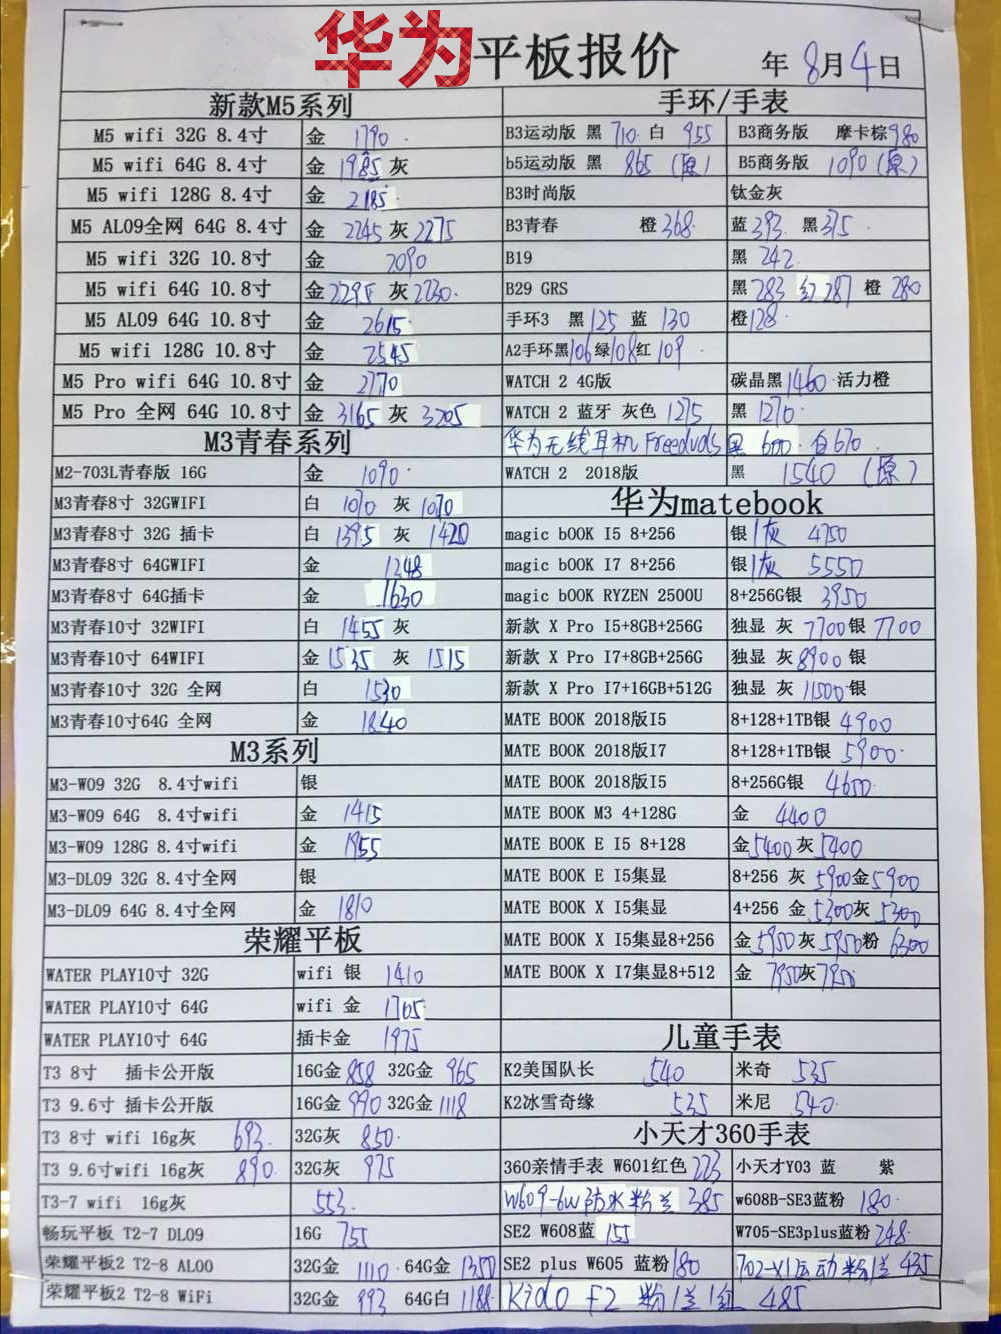 华为平板报价 年8月4日
新款M5系列
M5 wifi 32G 8.4寸 金 1790
M5 wifi 64G 8.4寸 金 1985 灰
M5 wifi 128G 8.4寸 金 2185
M5 AL09全网 64G 8.4寸 金 2245 灰 2275
M5 wifi 32G 10.8寸 金 2090
M5 wifi 64G 10.8寸 金 2295 灰 2230
M5 AL09 64G 10.8寸 金 2615
M5 wifi 128G 10.8寸 金 2545
M5 Pro wifi 64G 10.8寸 金 2770
M5 Pro 全网 64G 10.8寸 金 3165 灰 3205
M3青春系列
M2-703L青春版 16G 金 1090
M3青春8寸 32GWIFI 白 1070 灰 1070
M3青春8寸 32G 插卡 白 1395 灰 1420
M3青春8寸 64GWIFI 金 1248
M3青春8寸 64G插卡 金 1630
M3青春10寸 32WIFI 白 1455 灰
M3青春10寸 64WIFI 金 1535 灰 1515
M3青春10寸 32G 全网 白 1530
M3青春10寸64G 全网 金 1840
M3系列
M3-W09 32G 8.4寸wifi 银
M3-W09 64G 8.4寸wifi 金 1415
M3-W09 128G 8.4寸wifi 金 1955
M3-DL09 32G 8.4寸全网 银
M3-DL09 64G 8.4寸全网 金 1810
荣耀平板
WATER PLAY10寸 32G wifi 银 1410
WATER PLAY10寸 64G wifi 金 1705
WATER PLAY10寸 64G 插卡金 1975
T3 8寸 插卡公开版 16G金 858 32G金 965
T3 9.6寸 插卡公开版 16G金 990 32G金 1118
T3 8寸 wifi 16g灰 693 32G灰 850
T3 9.6寸wifi 16g灰 890 32G灰 975
T3-7 wifi 16g灰 553
畅玩平板 T2-7 DL09 16G 755
荣耀平板2 T2-8 AL00 32G金 1110 64G金 1350
荣耀平板2 T2-8 WiFi 32G金 993 64G白 1188
手环/手表
B3运动版 黑 710 白 955 B3商务版 摩卡棕 980
b5运动版 黑 865 (原) B5商务版 1090 (原)
B3时尚版 钛金灰
B3青春 橙 368 蓝 393 黑 375
B19 黑 242
B29 GRS 黑 283 红 287 橙 280
手环3 黑 125 蓝 130 橙 128
A2手环黑 106 绿 108 红 109
WATCH 2 4G版 碳晶黑 1460 活力橙
WATCH 2 蓝牙 灰色 1275 黑 1270
华为无线耳机 Freeduds 黑 600 白 670
WATCH 2 2018版 黑 1540 (原)
华为matebook
magic bOOK I5 8+256 银/灰 4750
magic bOOK I7 8+256 银/灰 5550
magic bOOK RYZEN 2500U 8+256G银 3950
新款 X Pro I5+8GB+256G 独显 灰 7700 银 7700
新款 X Pro I7+8GB+256G 独显 灰 8900 银
新款 X Pro I7+16GB+512G 独显 灰 11500 银
MATE BOOK 2018版I5 8+128+1TB银 4900
MATE BOOK 2018版I7 8+128+1TB银 5900
MATE BOOK 2018版I5 8+256G银 4650
MATE BOOK M3 4+128G 金 4400
MATE BOOK E I5 8+128 金 5400 灰 5400
MATE BOOK E I5集显 8+256 灰 5900 金 5900
MATE BOOK X I5集显 4+256 金 5300 灰 5300
MATE BOOK X I5集显8+256 金 5950 灰 5950 粉 6300
MATE BOOK X I7集显8+512 金 7950 灰 7950
儿童手表
K2美国队长 540 米奇 535
K2冰雪奇缘 535 米尼 540
小天才360手表
360亲情手表 W601红色 223 小天才Y03 蓝 紫
W609-6W防水粉兰 385 w608B-SE3蓝粉 180
SE2 W608蓝 155 W705-SE3plus蓝粉 248
SE2 plus W605 蓝粉 180 702-X1运动粉/兰 435
Kido F2 粉/兰/红 485